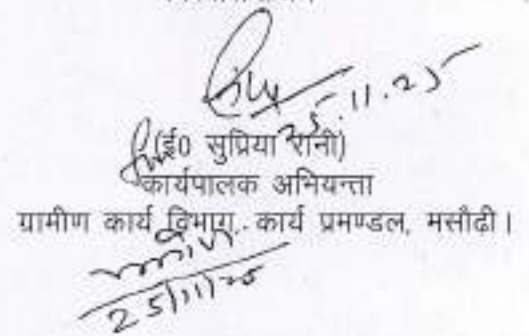 25.11.25
(ई0 सुप्रिया रानी)
कार्यपालक अभियन्ता
ग्रामीण कार्य विभाग, कार्य प्रमण्डल, मसौढी।
25/11/25